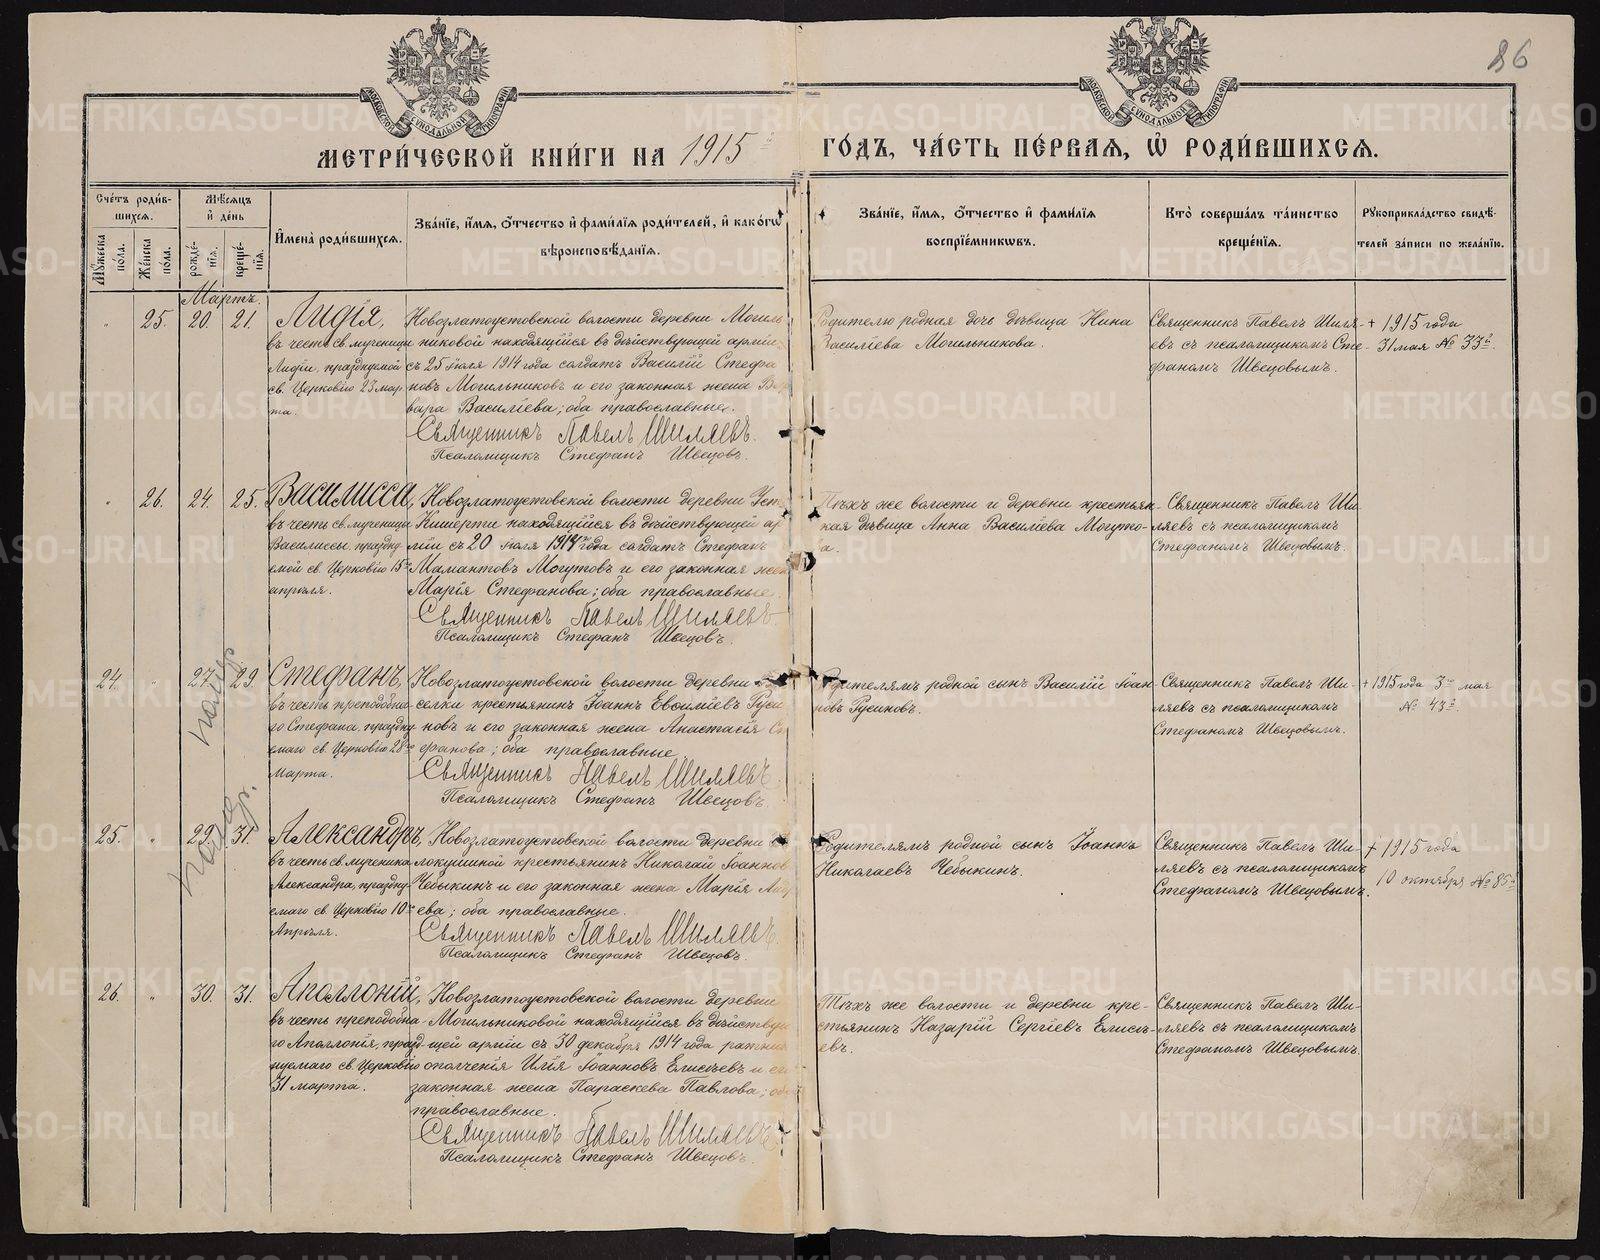 86
МЕТРИ́ЧЕСКОЙ КНИ́ГИ НА 1915й ГО́ДЪ, ЧА́СТЬ ПЕ́РВАЯ, Ѡ҆ РОДИ́ВШИХСЯ.
Сче́тъ роди́в-
шихся.
Му́жеска по́ла.
Же́нска по́ла.
Мѣ́сяцъ
и҆ де́нь
рожде́-
нїя.
креще́-
нїя.
И҆мена̀ роди́вшихся.
Зва́нїе, и҆́мя, ѻ҆́тчество и҆ фами́лїя роди́телей, и҆ како́гѡ
вѣроисповѣ́данїя.
Зва́нїе, и҆́мя, ѻ҆́тчество и҆ фами́лїя
воспрїе́мникѡвъ.
Кто̀ соверша́лъ та́инство
креще́нїя.
Рꙋкоприкла́дство свидѣ́-
телей за́писи по жела́нїю.
Мартъ.
" 25. 20. 21.
Лидія,
въ честь св. мученицы
Лидіи, празднуемой
св. Церковію 23 мар
та.
Новозлатоустовской волости деревни Могиль
никовой находящійся въ дѣйствующей арміи
съ 25 іюля 1914 года солдатъ Василій Стефа
новъ Могильниковъ и его законная жена Вар
вара Василіева; оба православные.
Священникъ Павелъ Шиляевъ.
Псаломщикъ Стефанъ Швецовъ.
Родителю родная дочь дѣвица Нина
Василіева Могильникова.
Священникъ Павелъ Шиля-
евъ съ псаломщикомъ Сте-
фаномъ Швецовымъ.
+ 1915 года
31 мая № 33й.
" 26. 24. 25.
Василисса,
въ честь св. мученицы
Василиссы, праздну-
емой св. Церковію 15го
апрѣля.
Новозлатоустовской волости деревни Усть
Кишерти находящійся въ дѣйствующей ар
міи съ 20 іюля 1914 года солдатъ Стефанъ
Мамантовъ Могутовъ и его законная жена
Марія Стефанова; оба православные.
Священникъ Павелъ Шиляевъ.
Псаломщикъ Стефанъ Швецовъ.
Тѣхъ же волости и деревни крестьян-
ская дѣвица Анна Василіева Могуто-
ва.
Священникъ Павелъ Ши-
ляевъ съ псаломщикомъ
Стефаномъ Швецовымъ.
24. " 27. 29.
Стефанъ,
въ честь преподобна
го Стефана, праздну
емаго св. Церковію 28го
Марта.
Новозлатоустовской волости деревни
селки крестьянинъ Іоаннъ Евсиліевъ Руси
новъ и его законная жена Анастасія Сте
фанова; оба православные
Священникъ Павелъ Шиляевъ.
Псаломщикъ Стефанъ Швецовъ.
Родителямъ родной сынъ Василій Іоан-
новъ Русиновъ.
Священникъ Павелъ Ши-
ляевъ съ псаломщикомъ
Стефаномъ Швецовымъ.
+ 1915 года 3го мая
№ 43й.
25. " 29. 31.
Александръ,
въ честь св. мученика
Александра, праздну
емаго св. Церковію 10го
Апрѣля.
Новозлатоустовской волости деревни
локушиной крестьянинъ Николай Іоанновъ
Чебыкинъ и его законная жена Марія
ева; оба православные.
Священникъ Павелъ Шиляевъ.
Псаломщикъ Стефанъ Швецовъ.
Родителямъ родной сынъ Іоаннъ
Николаевъ Чебыкинъ.
Священникъ Павелъ Ши-
ляевъ съ псаломщикомъ
Стефаномъ Швецовымъ.
+ 1915 года
10 октября № 85й
26. " 30. 31.
Аполлоній,
въ честь преподобна-
го Аполлонія, празд-
нуемаго св. Церковію
31 марта.
Новозлатоустовской волости деревни
Могильниковой находящійся въ дѣйствую
щей арміи съ 30 декабря 1914 года ратник
ополченія Илія Іоанновъ Елисѣевъ и его
законная жена Параскева Павлова; оба
православные.
Священникъ Павелъ Шиляевъ
Псаломщикъ Стефанъ Швецовъ.
Тѣхъ же волости и деревни кре-
стьянинъ Назарій Сергіевъ Елисѣ-
евъ.
Священникъ Павелъ Ши-
ляевъ съ псаломщикомъ
Стефаномъ Швецовымъ.
METRIKI.GASO-URAL.RU